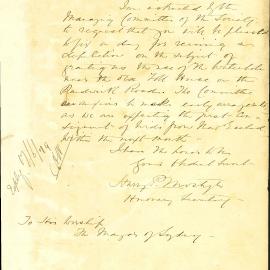 I am instructed by the
Managing Committee of this Society
to request that you will be pleased
to fix a day for receiving a
deputation on the subject of
granting us the use of the
near the old Toll House on the
Randwick Road. The Committee
is anxious to make early
as we are expecting the first con-
signment of birds from New Zealand
within the next month.
I have the honor to be
Your obedient Servt
Honorary Secretary
To His Worship
The Mayor of Sydney